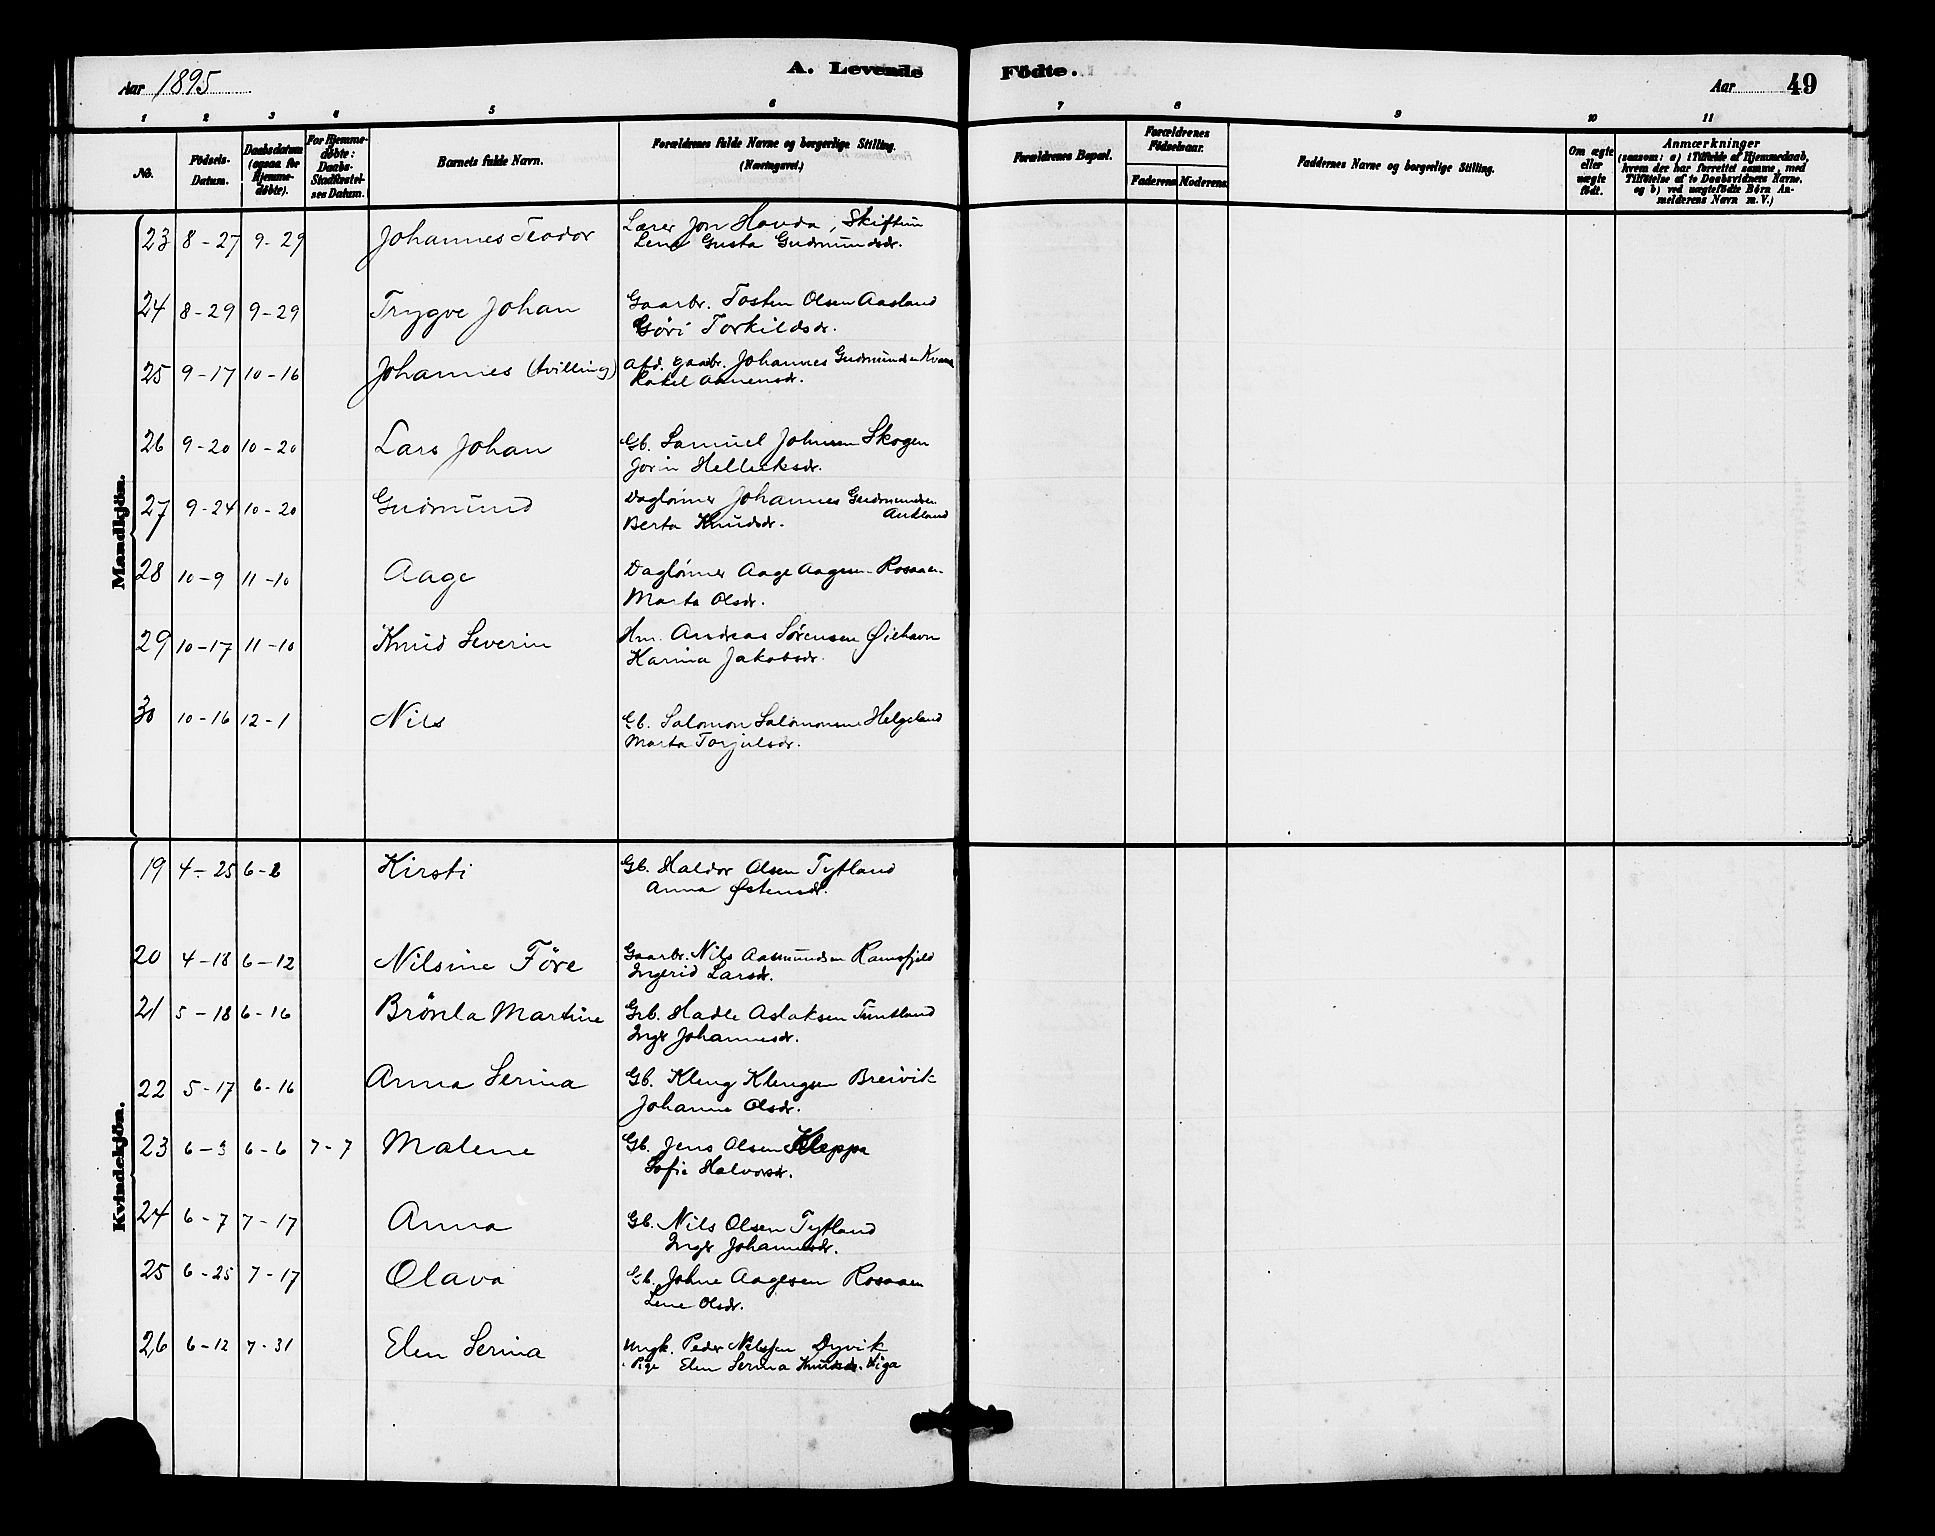 Aar 1895
A. Levende Födte.
Aar 49
1 2 3 4 5 6 7 8 9 10 11
No.
Födsels-Datum.
Daabsdatum (ogsaa for Hjemme-döbte).
For Hjemme-döbte: Daabs-Stadfæstel-ses Datum.
Barnets fulde Navn.
Forældrenes fulde Navne og borgerlige Stilling. (Næringsvei.)
Forældrenes Bopæl.
Forældrenes Födselsaar.
Faderens. Moderens.
Faddernes Navne og borgerlige Stilling.
Om ægte eller uægte födt.
Anmærkninger
(saasom: a) i Tilfælde af Hjemmedaab, hvem der har forrettet samme, med Tilföielse af to Daabsvidners Navne, og b) ved uægtefödte Börn An-melderens Navn m. V.)
Mandkjön.
23 8-27 9-29 Johannes Teodor Lærer Jon Havda, Skiftun
Lene Gusta Gudmundsdr.
24 8-29 9-29 Trygve Johan Gaarbr. Tosten Olsen Aasland
Göri Torkildsdr.
25 9-17 10-16 Johannes (tvilling) Afd. gaarbr. Johannes Gudmundsen
Rakel
26 9-20 10-20 Lars Johan Gb. Samuel Johnsen Skogen
Jorin
27 9-24 10-20 Gudmund Daglönner Johannes Gudmundsen
Berta Knudsdr.
28 10-9 11-10 Aage Daglönner Aage Aagesen Rosaaen
Marta Olsdr.
29 10-17 11-10 Knud Severin Hm. Andreas Sörensen Øiehavn
Karina Jakobsdr.
30 10-16 12-1 Nils Gb. Salomon Salomonsen Helgeland
Marta Torjulsdr.
Kvindekjön.
19 4-25 6- Kirsti Gb. Haldor Olsen Tytland
Anna Østensdr.
20 4-18 6-12 Nilsine Töre Gaarbr. Nils Aasmundsen Ramsfjeld
Ingerid Larsdr.
21 5-18 6-16 Brönla Martine Grb. Hadle Aslaksen Tuntland
Ingr Johannesdr.
22 5-17 6-16 Anna Serina Gb. Kleng Klengsen Breivik
Johanne Olsdr.
23 6-3 6-6 7-7 Malene Gb. Jens Olsen Kleppa
Sofie Halvorsdr.
24 6-7 7-17 Anna Gb. Nils Olsen Tytland
Ingr Johannesdr.
25 6-25 7-17 Olava Gb. Johne Aagesen Rosaaen
Lene Olsdr.
26 6-12 7-31 Elen Serina Ungk. Peder Nilssen Dyvik
Pige Elen Serina Knudsdr.